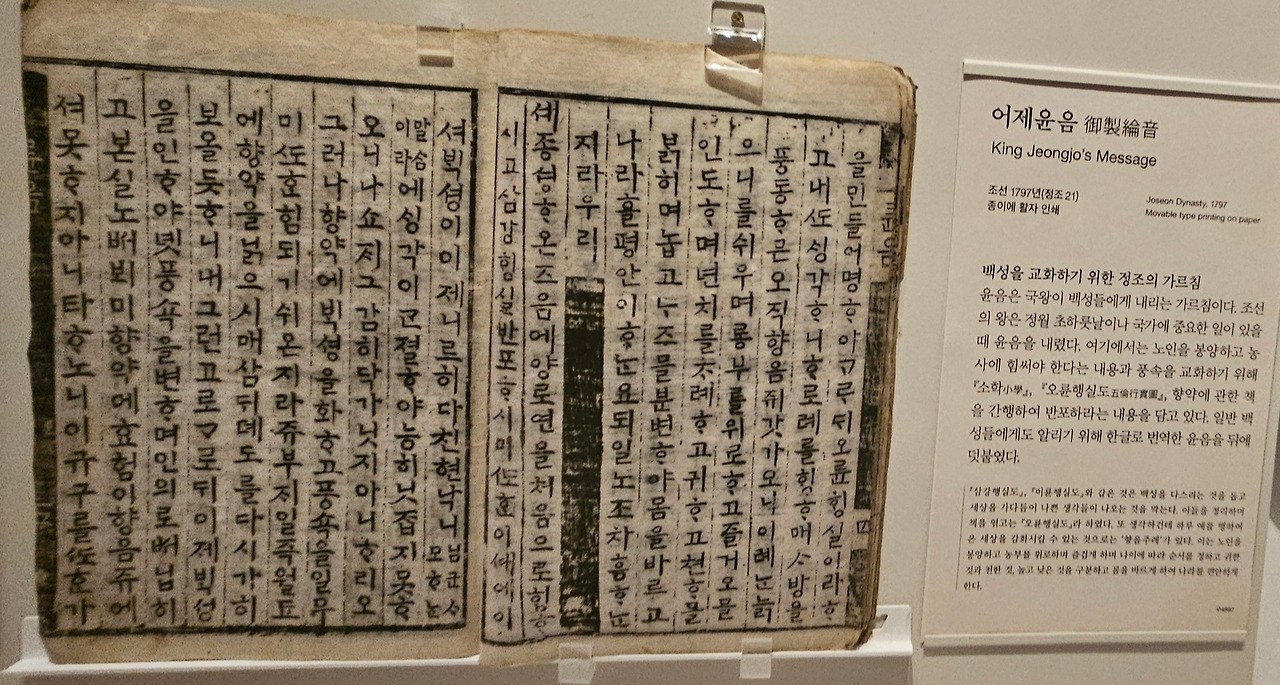 을민들어명ᄒᆞ야ᄀᆞᄅᆞ뒤오륜ᄒᆡᆼ실이라ᄒᆞ
고내ᄯᅩᄉᆡᆼ각ᄒᆞ니ᄒᆞ로례를ᄒᆡᆼᄒᆞ매ᄉᆞ방을
풍동ᄒᆞ믄오직향음쥐갓가오니이례ᄂᆞᆫ늙
으니를쉬우며롱부를위로ᄒᆞ고즐거오믈
인도ᄒᆞ며년치를ᄎᆞ례ᄒᆞ고귀ᄒᆞ고쳔ᄒᆞ믈
붉히며놉고ᄂᆞᄌᆞ믈분변ᄒᆞ야몸을바르고
나라흘평안이ᄒᆞᄂᆞᆫ요되일노조차흠ᄒᆞᄂᆞᆫ
지라우리
셰종셩ᄒᆞ온즈음에양로연을처음으로ᄒᆡᆼᄒᆞ
시고삼강ᄒᆡᆼ실반포ᄒᆞ시미ᄯᅩᄒᆞᆫ이ᄯᅢ에이
셔ᄇᆡᆨ셩이이제니르히다친현낙니
말ᄉᆞᆷ이라에ᄉᆡᆼ각이ᄀᆞᆫ졀ᄒᆞ야능히닛ᄌᆞᆸ지못ᄒᆞ
오니나쇼ᄌᆡ그감히닥가닛지아니ᄒᆞ리오
그러나향약에ᄇᆡᆨ셩을화ᄒᆞ고풍쇽을일우
미ᄯᅩᄒᆞᆫ힘되기쉬온지라쥬부ᄌᆡ일즉월도
에향약을넑으시매삼뒤데도를다시가히
보올듯ᄒᆞ니내그런고로ᄀᆞ로뒤이제ᄇᆡᆨ셩
을인ᄒᆞ야녯풍쇽을변ᄒᆞ며인의로ᄡᅥ님히
고본실노ᄡᅥ뵈미향약에효험이향음쥬에
셔못ᄒᆞ지아니타ᄒᆞ노니이규구를ᄯᅩᄒᆞᆫ가
어제윤음 御製綸音
King Jeongjo's Message
조선 1797년(정조 21)
종이에 활자 인쇄
Joseon Dynasty, 1797
Movable type printing on paper
백성을 교화하기 위한 정조의 가르침
윤음은 국왕이 백성들에게 내리는 가르침이다. 조선
의 왕은 정월 초하룻날이나 국가에 중요한 일이 있을
때 윤음을 내렸다. 여기에서는 노인을 봉양하고 농
사에 힘써야 한다는 내용과 풍속을 교화하기 위해
『소학小學』, 『오륜행실도五倫行實圖』, 향약에 관한 책
을 간행하여 반포하라는 내용을 담고 있다. 일반 백
성들에게도 알리기 위해 한글로 번역한 윤음을 뒤에
덧붙였다.
『삼강행실도』, 『이륜행실도』와 같은 것은 백성을 다스리는 것을 돕고
세상을 가다듬어 나쁜 생각들이 나오는 것을 막는다. 이들을 정리하며
책을 엮고는 『오륜행실도』라 하였다. 또 생각하건데 하루 예를 행하여
온 세상을 감화시킬 수 있는 것으로는 '향음주례'가 있다. 이는 노인을
봉양하고 농부를 위로하며 즐겁게 하며 나이에 따라 순서를 정하고 귀한
것과 천한 것, 높고 낮은 것을 구분하고 몸을 바르게 하여 나라를 편안하게
한다.